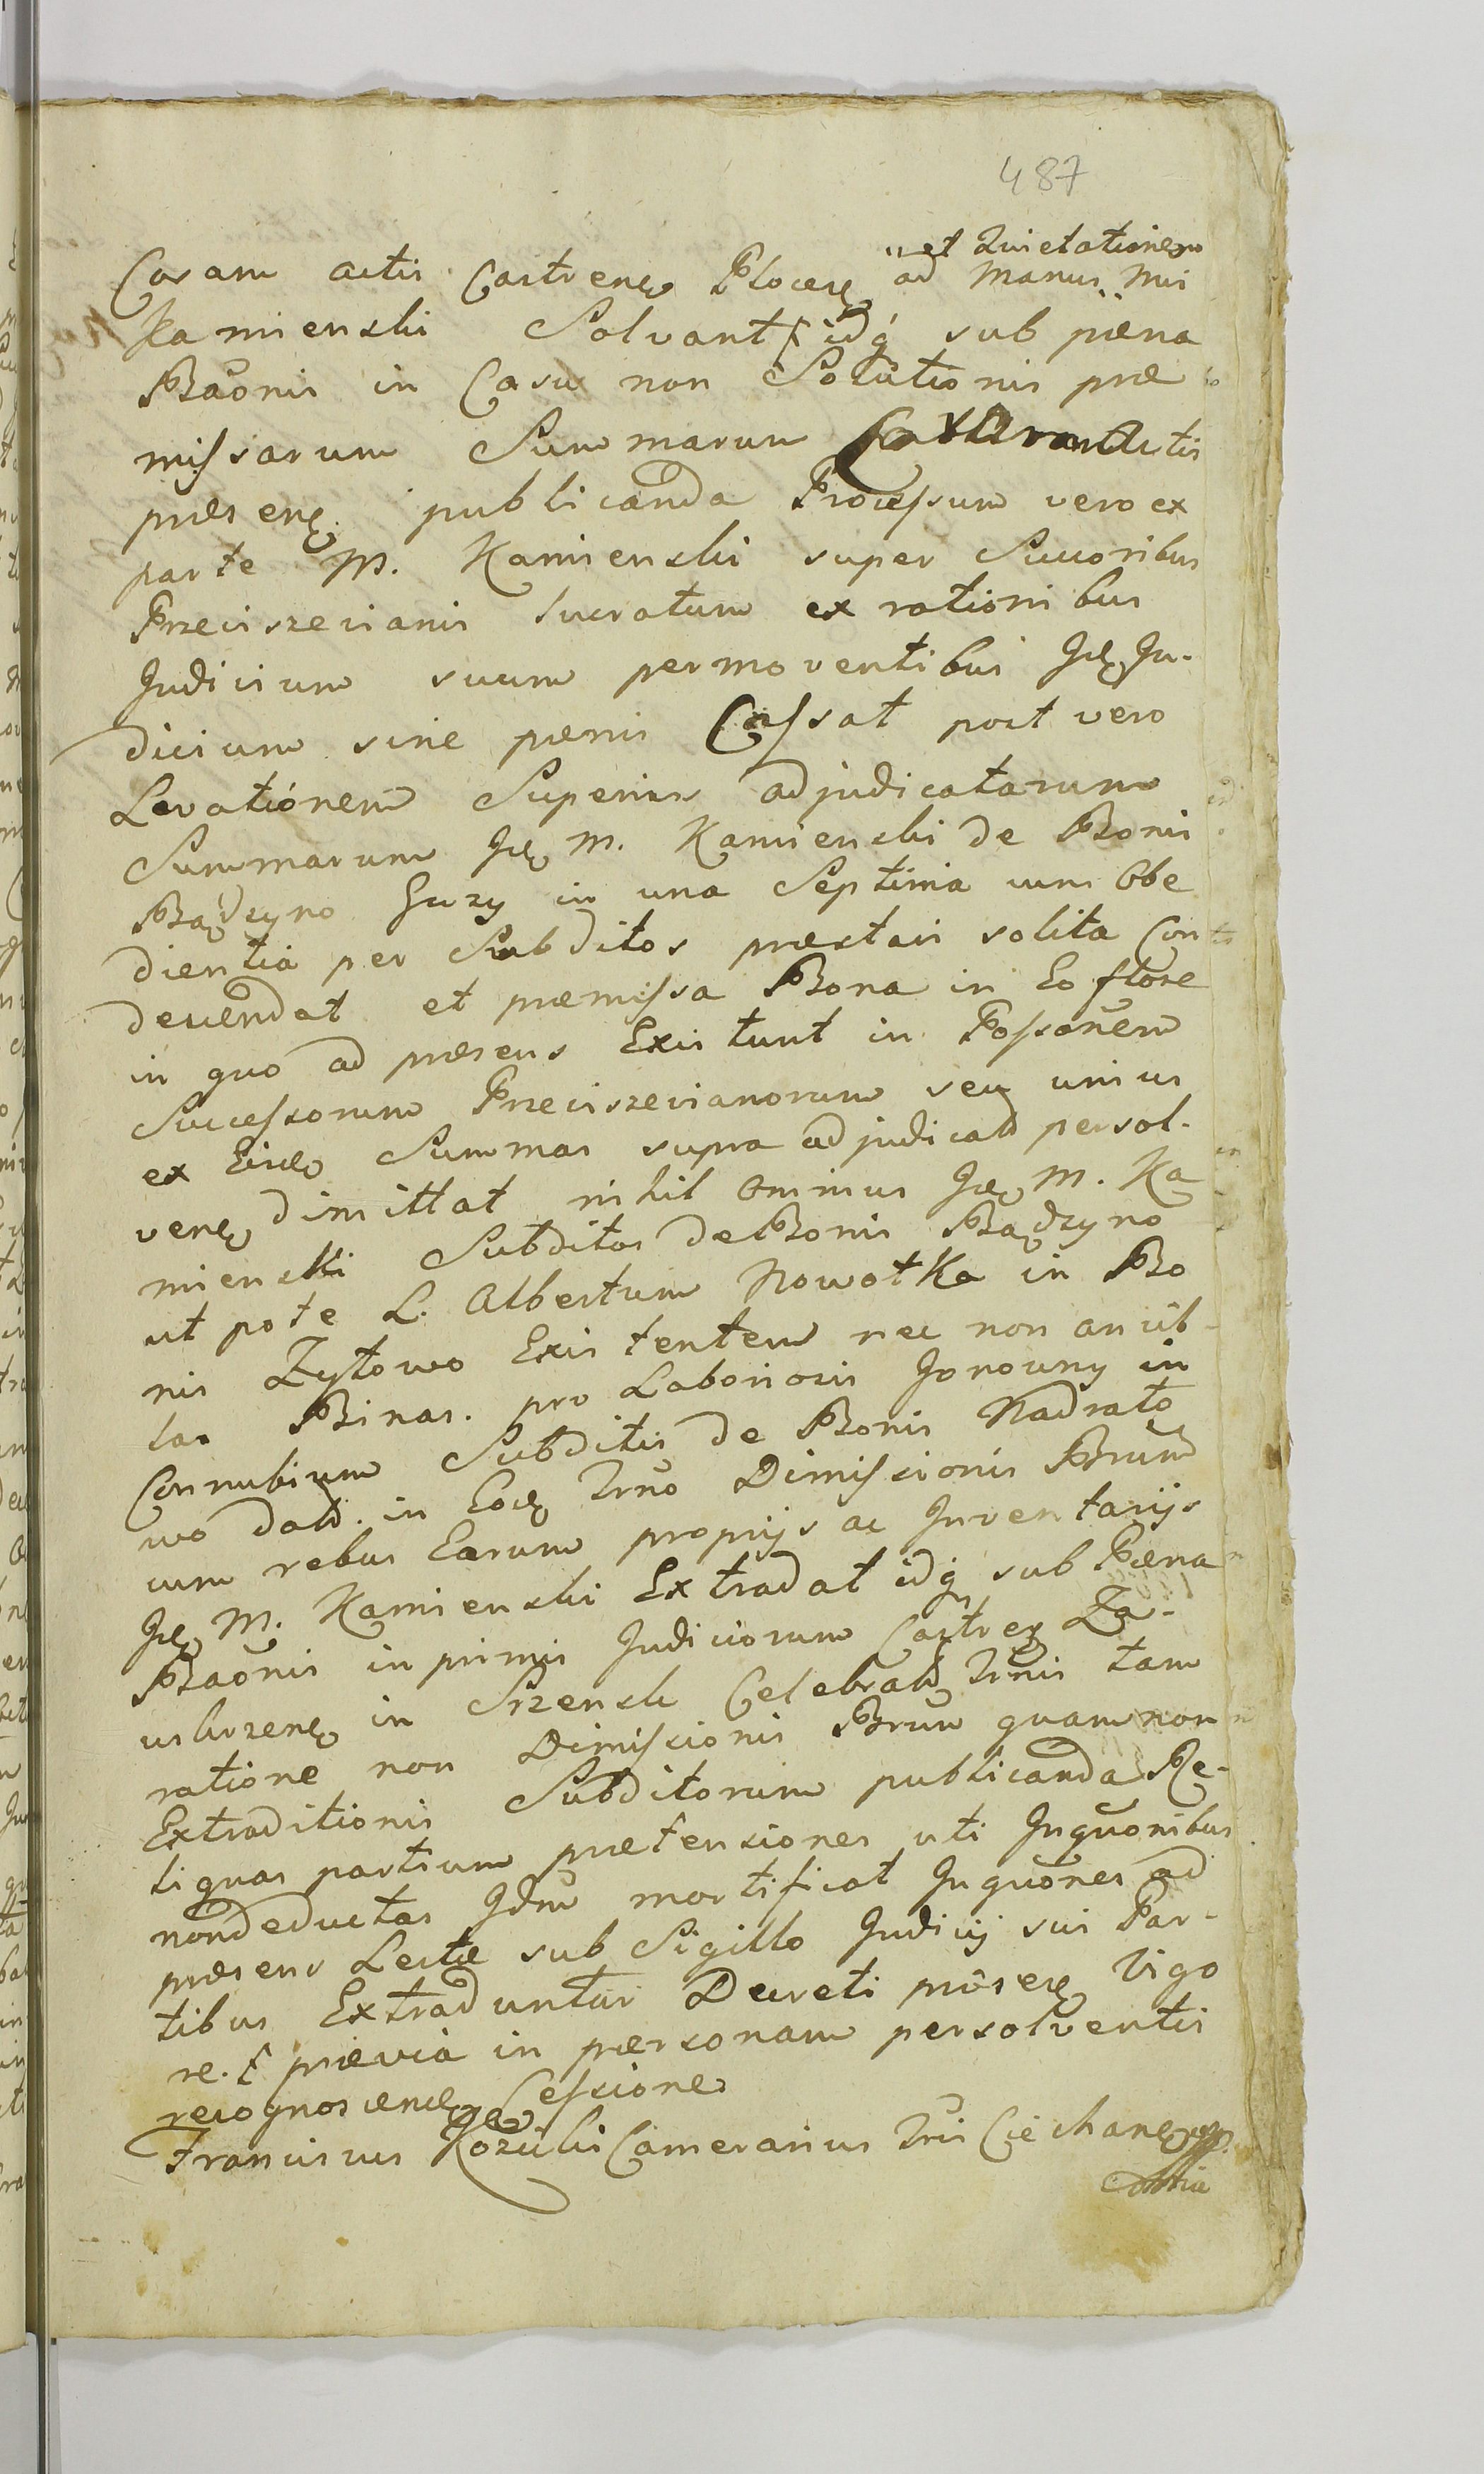 487
et Quietationem
Coram actis Castrenę Plocenę ad manus Mci
Kamienski Solvant idq sub pæna
Baonis in Casu non Solutionis præ
missarum Summarum Coram Actis
præsenę publicanda Processum vero ex
parte M. Kamienski super Succoribus
Przeciszecianis lucratum ex rationibus
Judicium suum permoventibus Idę Ju-
dicium sine pænis Cassat post vero
Levationem Superius adjudicatarum
Summarum Idę M. Kamienski de Bonis
Bądzyno Guzy in una Septima cum Obe
dientia per Subditos præstari solita Con
descendat et præmissa Bona in Eo flore
in quo ad præsens Existunt in Possonem
Successorum Przeciszecianorum seu unius
ex Eisdę Summas supra adjudicatd persol-
venę dimittat nihil Ominus Idę M. Ka
mienski Subditos de Bonis Bądzyno
ut pote L. Albertum Nowotka in Bo
nis Zytowo Existentem nec non ancil-
las Binas. pro Laboriosis Jonowny in
Connubium Subditis de Bonis Nadrato
wo datd. in Eodę Trno Dimissionis Brum
cum rebus Earum proprijs ac Inventarijs
Idę M. Kamienski Extradat idq sub Pæna
Baonis in primis Judiciorum Castreę Za-
uskrzenę in Srzensk Celebratd Trnis tam
ratione non Dimissionis Brum quam non
Extraditionis Subditorum publicanda Re-
liquas partium prætensiones uti Inquonibus
non deductas Idm mortificat Inquones ad
præsens Lectæ sub Sigillo Judicij sui Par-
tibus Extraduntur Decreti præsenę Vigo
re. prævia in personam persolventis
recognoscendę Cessione
Franciscus Kozicki Camerarius Tris Ciechanę